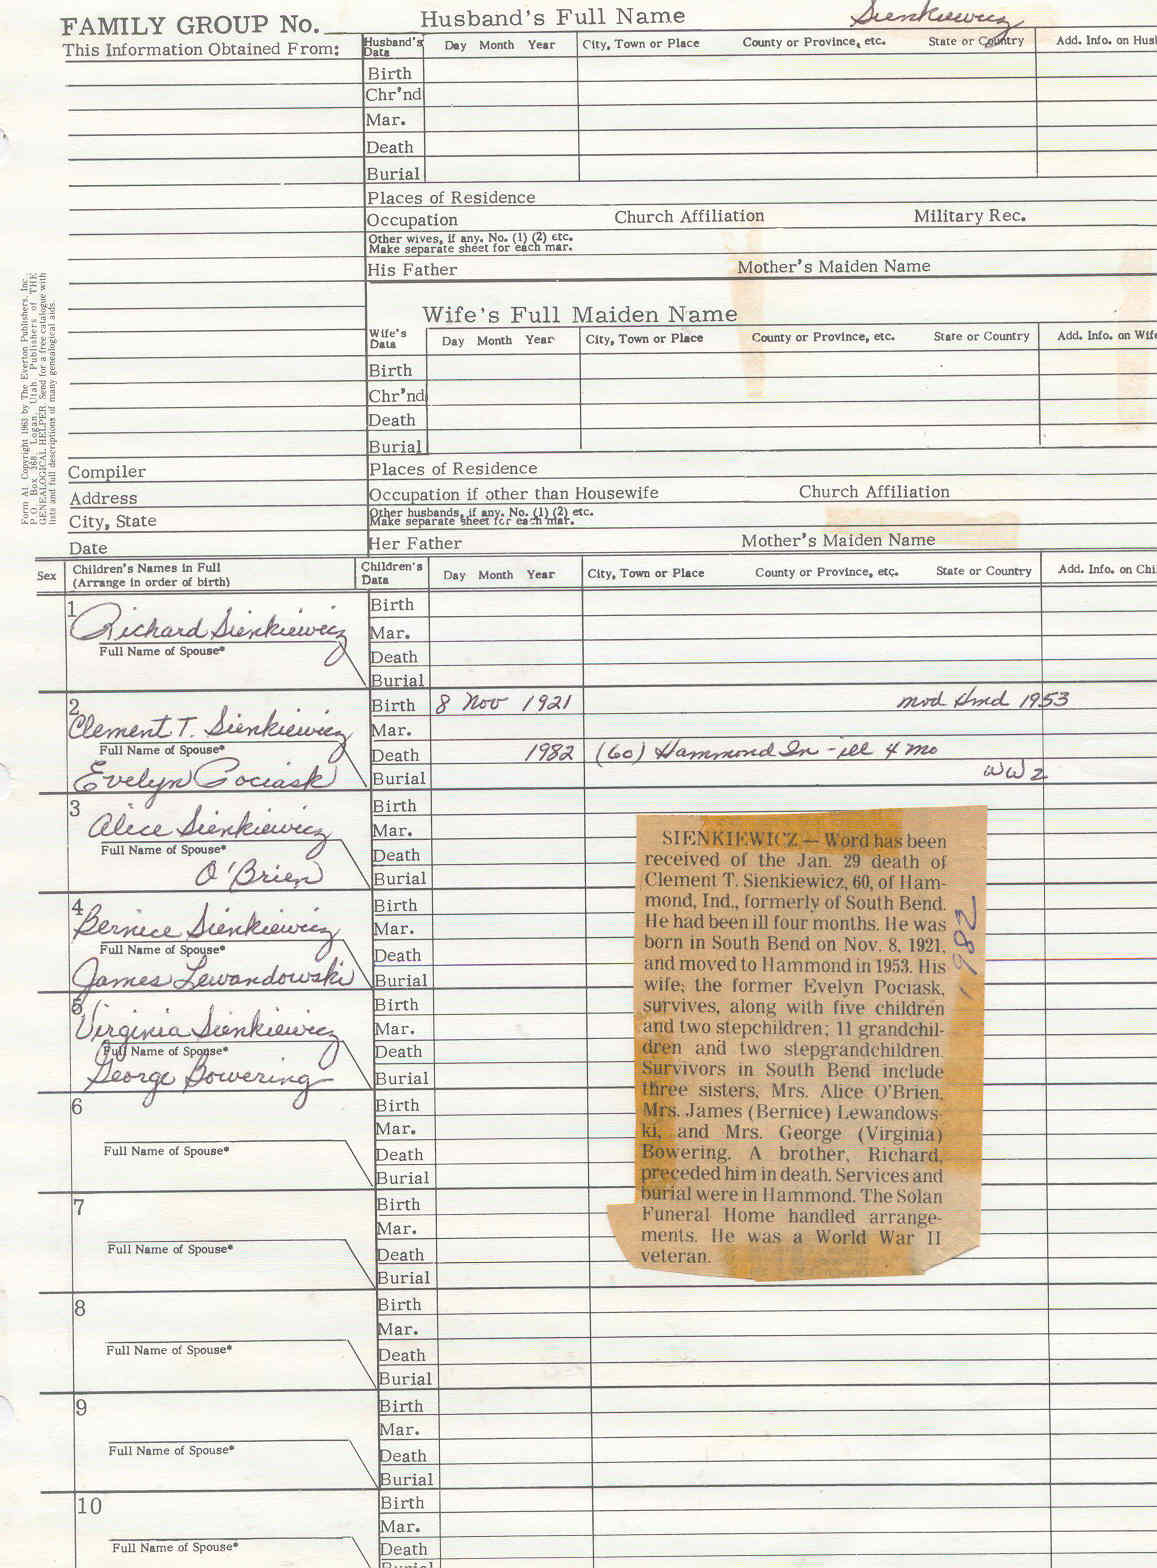 FAMILY GROUP No.
Husband's Full Name Sienkiewicz
This Information Obtained From:
Husband's Data Day Month Year City, Town or Place County or Province, etc. State or Country Add. Info. on Hus
Birth
Chr'nd
Mar.
Death
Burial
Places of Residence
Occupation Church Affiliation Military Rec.
Other wives, if any. No. (1) (2) etc.
Make separate sheet for each mar.
His Father Mother's Maiden Name
Form A1 Copyright 1963 by The Everton Publishers, Inc.,
P.O. Box 368 Logan, Utah, Publishers of THE
GENEALOGICAL HELPER. Send for a free catalogue with
lists and full descriptions of many genealogical aids.
Wife's Full Maiden Name
Wife's Data Day Month Year City, Town or Place County or Province, etc. State or Country Add. Info. on Wife
Birth
Chr'nd
Death
Burial
Compiler Places of Residence
Address Occupation if other than Housewife Church Affiliation
City, State Other husbands, if any. No. (1) (2) etc.
Make separate sheet for each mar.
Date Her Father Mother's Maiden Name
Sex Children's Names in Full
(Arrange in order of birth) Children's Data Day Month Year City, Town or Place County or Province, etc. State or Country Add. Info. on Chil
1 Birth
Richard Sienkiewicz Mar.
Full Name of Spouse* Death
Burial
2 Birth 8 Nov 1921 mvd Hmd 1953
Clement T. Sienkiewicz Mar.
Full Name of Spouse* Death 1982 (60) Hammond In - ill 4 mo
Evelyn Pociask Burial WW2
3 Birth
Alice Sienkiewicz Mar.
Full Name of Spouse* Death
O'Brien Burial
4 Birth
Bernice Sienkiewicz Mar.
Full Name of Spouse* Death
James Lewandowski Burial
5 Birth
Virginia Sienkiewicz Mar.
Full Name of Spouse* Death
George Bowering Burial
SIENKIEWICZ — Word has been
received of the Jan. 29 death of
Clement T. Sienkiewicz, 60, of Ham-
mond, Ind., formerly of South Bend.
He had been ill four months. He was
born in South Bend on Nov. 8, 1921,
and moved to Hammond in 1953. His
wife; the former Evelyn Pociask,
survives, along with five children
and two stepchildren; 11 grandchil-
dren and two stepgrandchildren.
Survivors in South Bend include
three sisters, Mrs. Alice O'Brien,
Mrs. James (Bernice) Lewandows-
ki, and Mrs. George (Virginia)
Bowering. A brother, Richard,
preceded him in death. Services and
burial were in Hammond. The Solan
Funeral Home handled arrange-
ments. He was a World War II
veteran.
1982
6 Birth
Mar.
Full Name of Spouse* Death
Burial
7 Birth
Mar.
Full Name of Spouse* Death
Burial
8 Birth
Mar.
Full Name of Spouse* Death
Burial
9 Birth
Mar.
Full Name of Spouse* Death
Burial
10 Birth
Mar.
Full Name of Spouse* Death
Burial